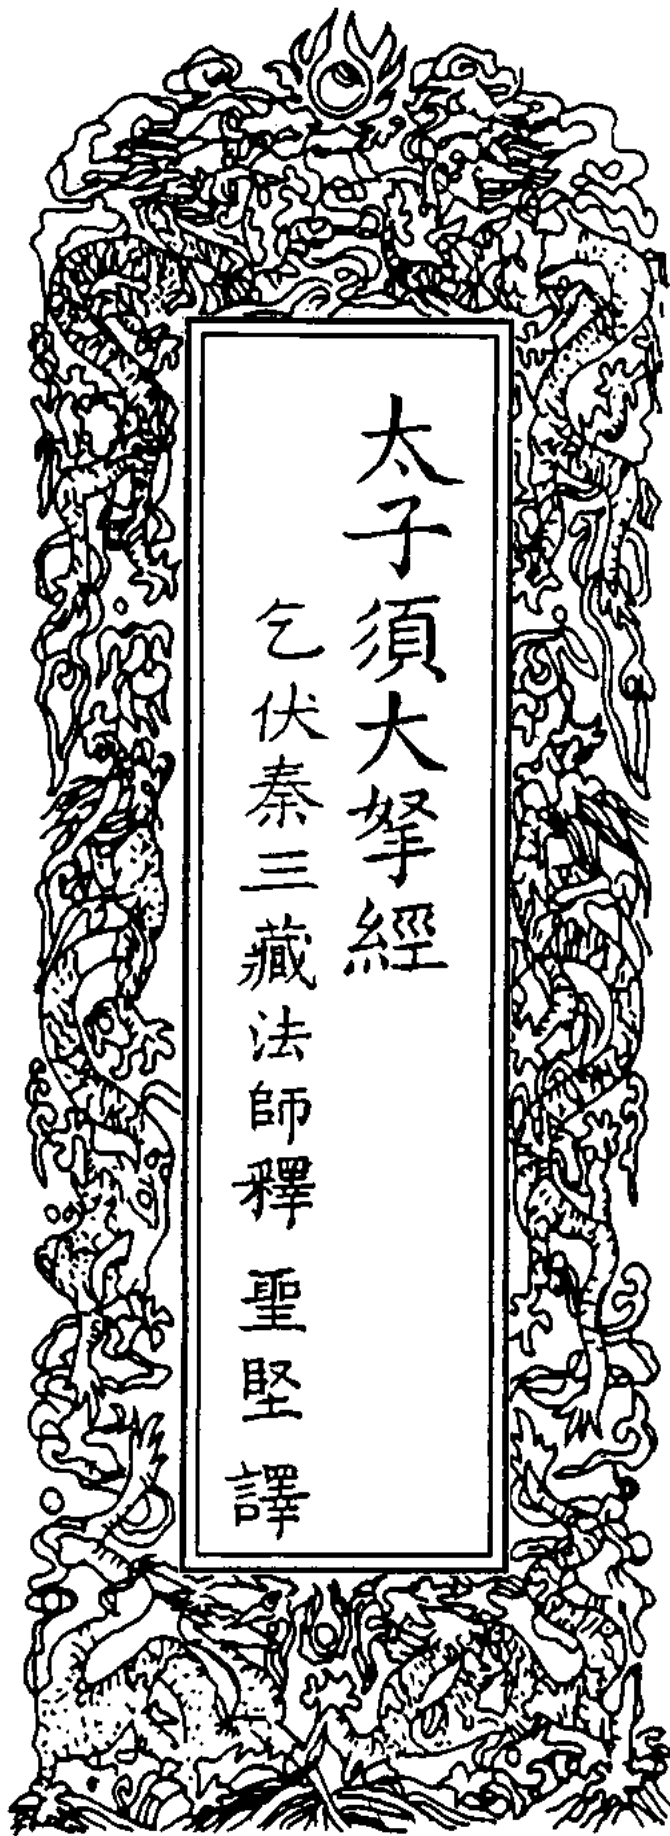 太子須大拏經
乞伏秦三藏法師釋聖堅譯